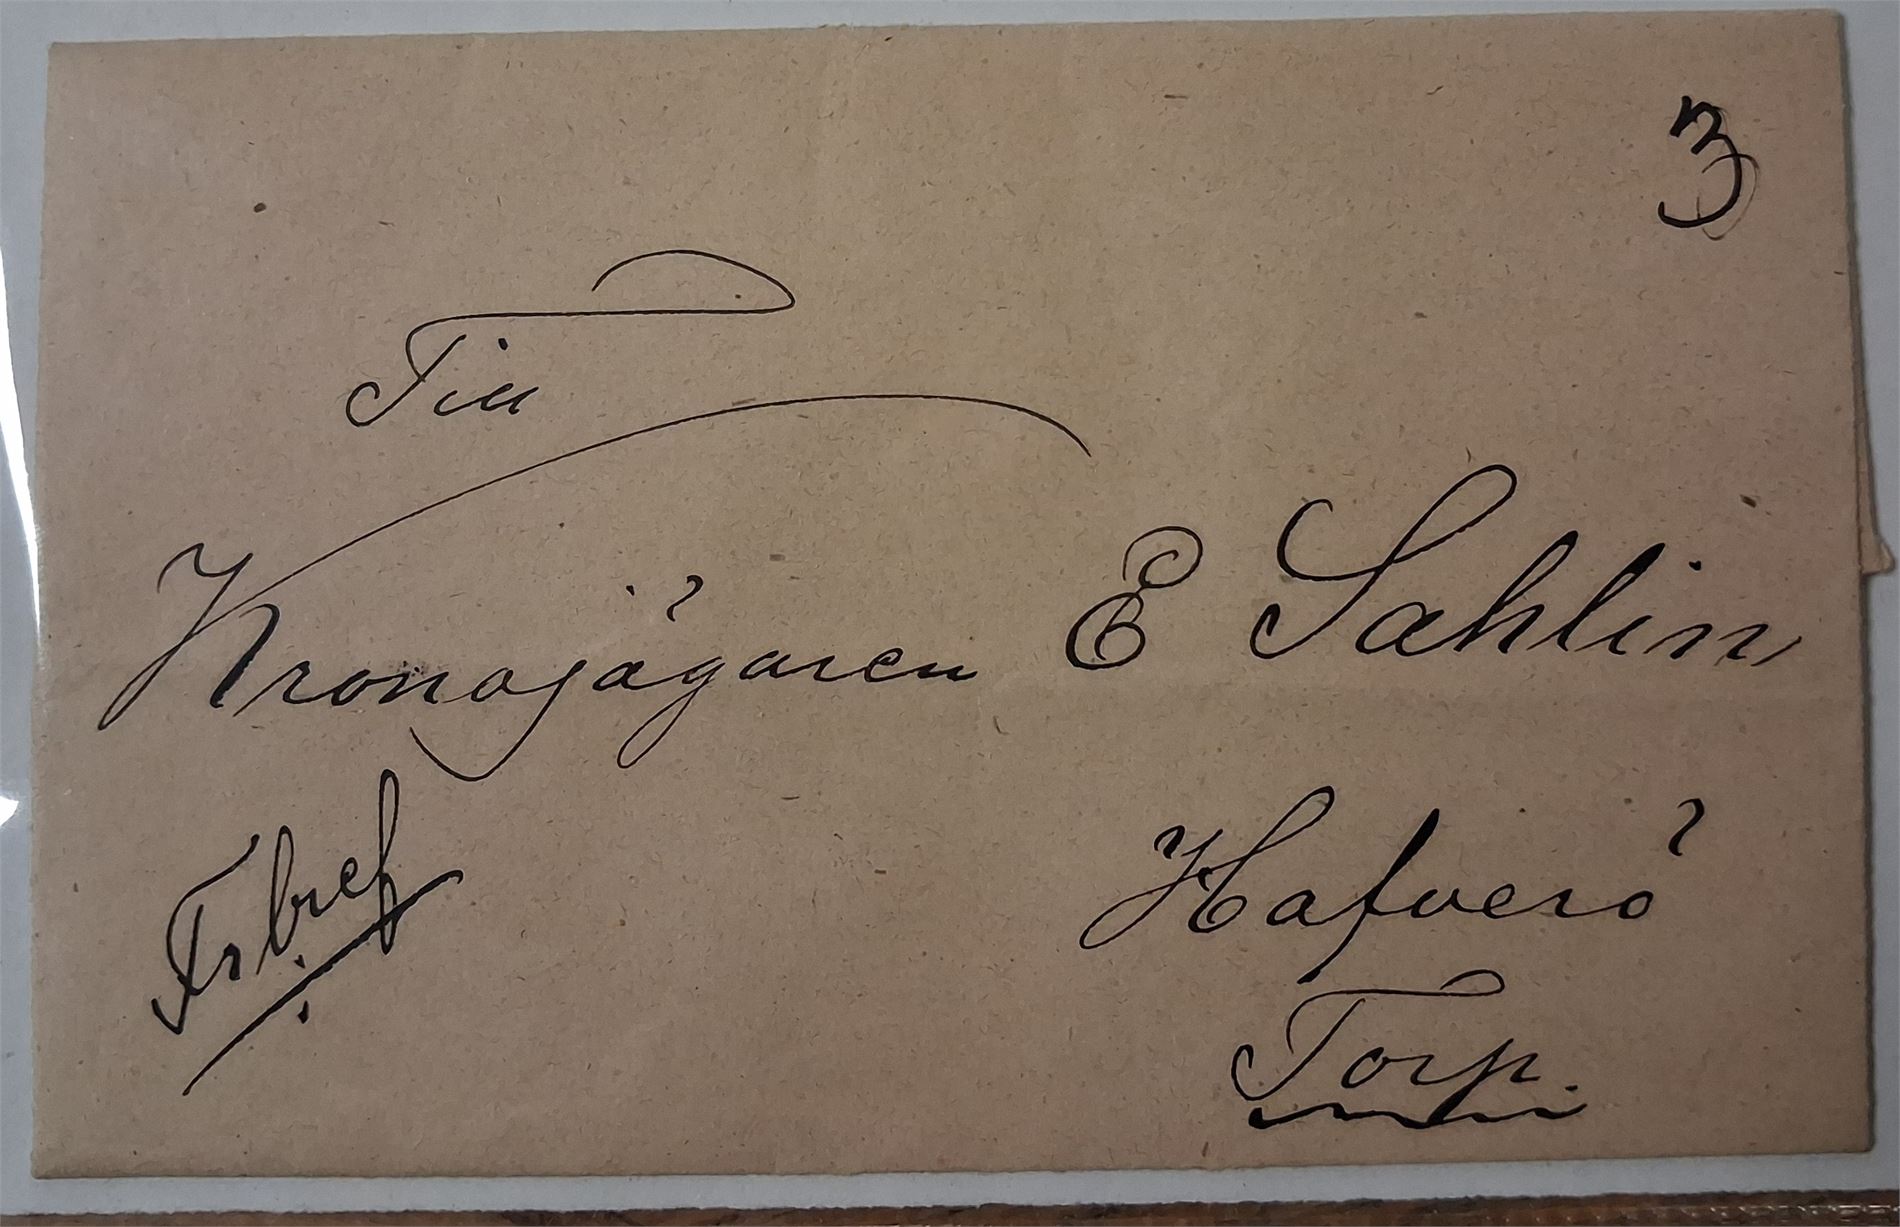 3
Till
Kronojägaren E Sahlin
Frbref
Hafverö
Torp.